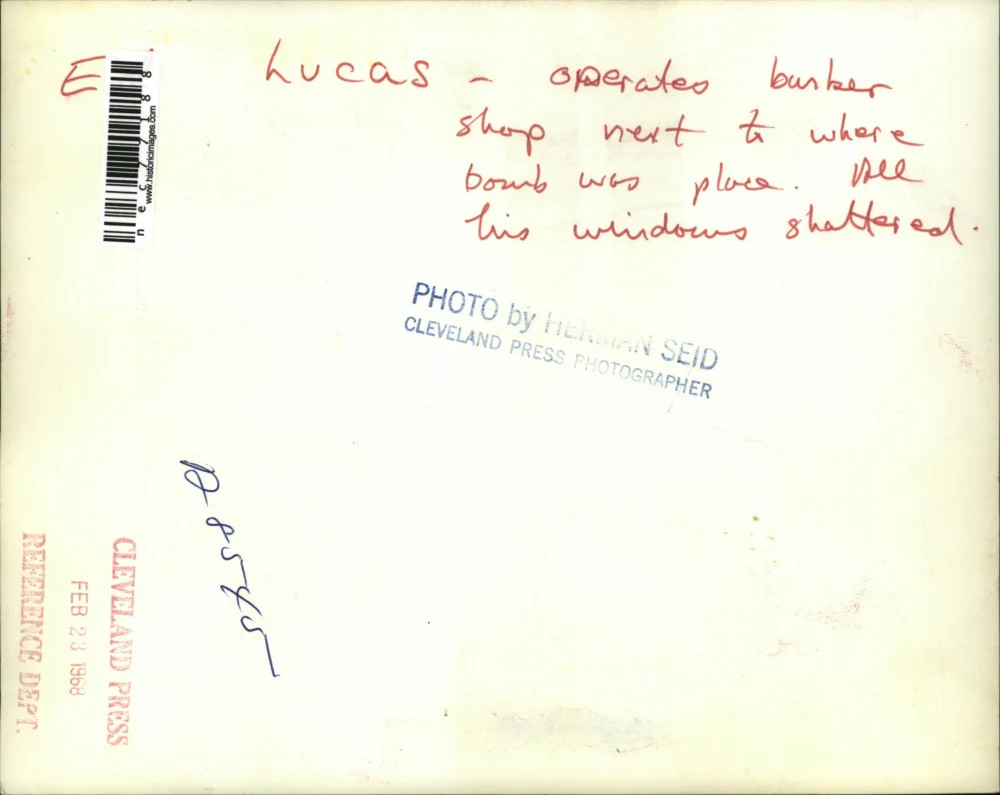 E Lucas - operates barber
shop next to where
bomb was place. All
his windows shattered.
PHOTO by HERMAN SEID
CLEVELAND PRESS PHOTOGRAPHER
8545
CLEVELAND PRESS
FEB 23 1968
REFERENCE DEPT.
www.historicimages.com